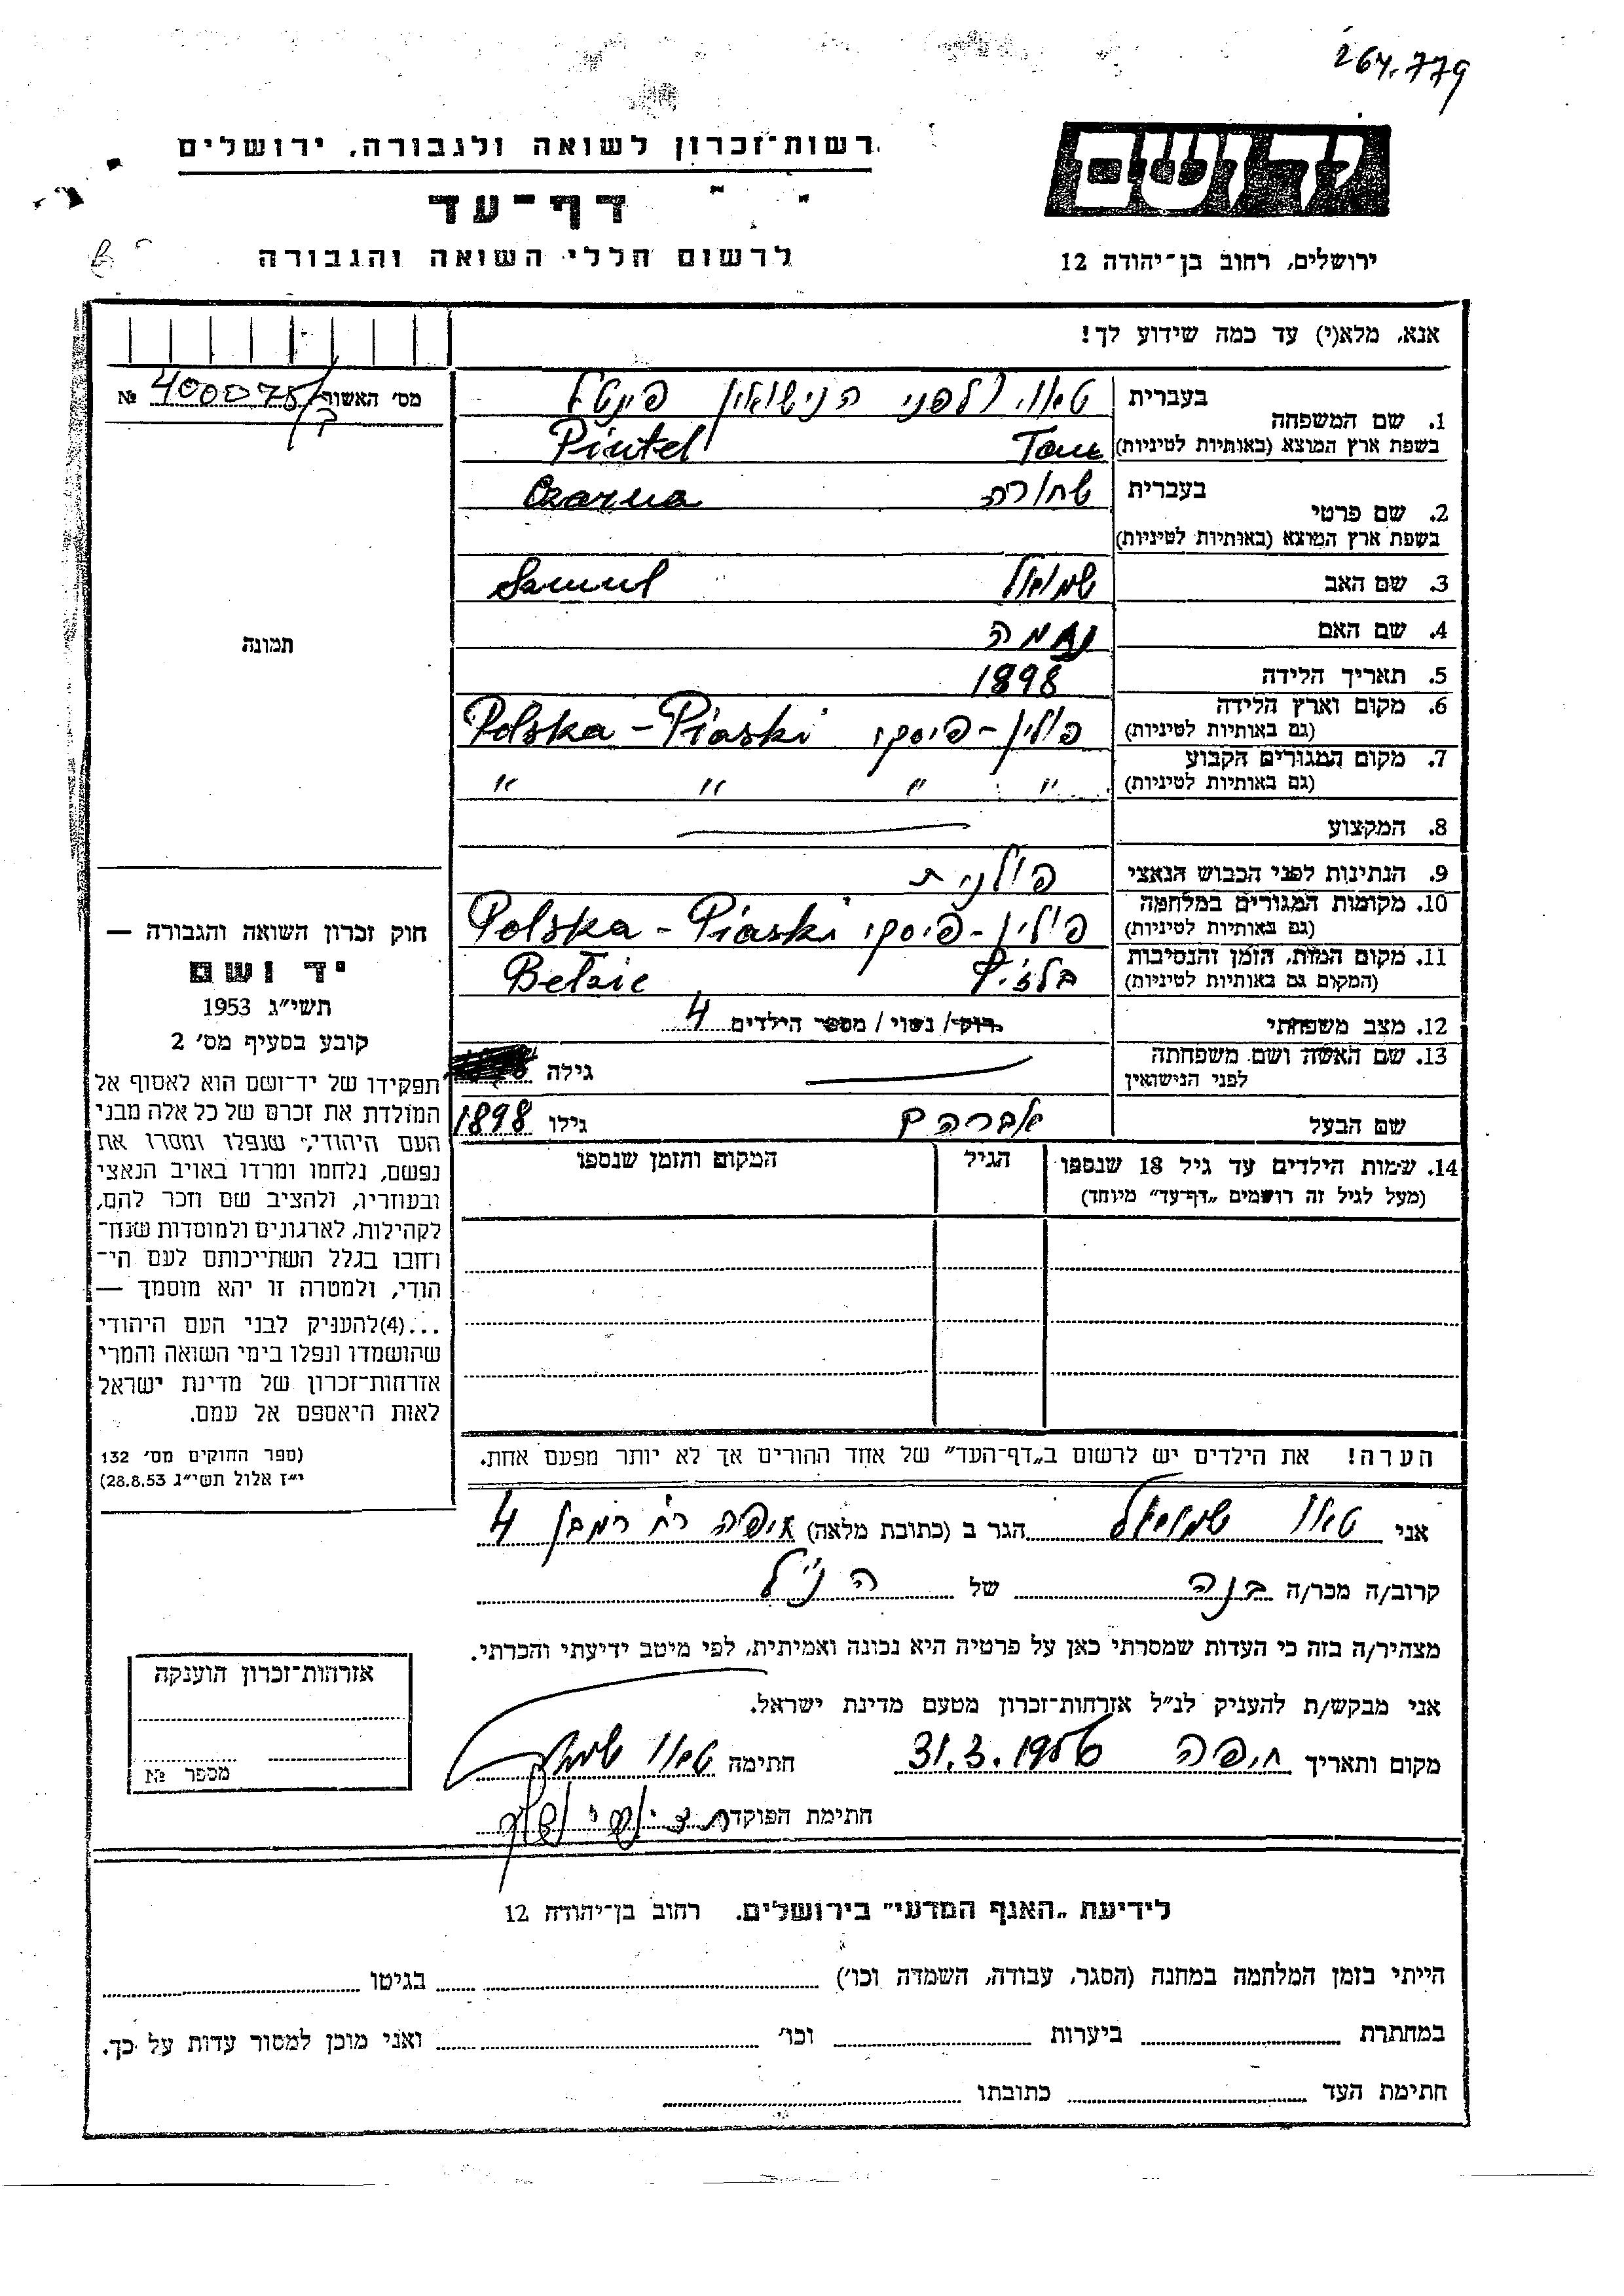 264.779
רשות־זכרון לשואה ולגבורה, ירושלים
יד ושם
דף־עד
לרשום חללי השואה והגבורה
ירושלים, רחוב בן־יהודה 12
אנא, מלא(י) עד כמה שידוע לך!
מס׳ האשור 400075 №
1. שם המשפחה בעברית טאוו (לפני הנישואין פינטל
בשפת ארץ המוצא (באותיות לטיניות) Pintel
2. שם פרטי בעברית שחורה Czarna
בשפת ארץ המוצא (באותיות לטיניות)
3. שם האב שמואל Samul
4. שם האם נעמה
5. תאריך הלידה 1898
6. מקום וארץ הלידה פולין - פיסקי Polska - Piaski
(גם באותיות לטיניות)
7. מקום המגורים הקבוע " " " "
(גם באותיות לטיניות)
8. המקצוע
9. הנתינות לפני הכבוש הנאצי פולנית
10. מקומות המגורים במלחמה פולין - פיסקי Polska - Piaski
(גם באותיות לטיניות)
11. מקום המות, הזמן והנסיבות בלז'ץ Bełzic
(המקום גם באותיות לטיניות)
12. מצב משפחתי רוק/ נשוי / מספר הילדים 4
13. שם האשה ושם משפחתה גילה
לפני הנישואין
שם הבעל אברהם גילו 1898
14. שמות הילדים עד גיל 18 שנספו הגיל המקום והזמן שנספו
(מעל לגיל זה רושמים „דף־עד" מיוחד)
הערה! את הילדים יש לרשום ב„דף־העד" של אחד ההורים אך לא יותר מפעם אחת.
תמונה
חוק זכרון השואה והגבורה —
יד ושם
תשי״ג 1953
קובע בסעיף מס׳ 2
תפקידו של יד־ושם הוא לאסוף אל
המולדת את זכרם של כל אלה מבני
העם היהודי, שנפלו ומסרו את
נפשם, נלחמו ומרדו באויב הנאצי
ובעוזריו, ולהציב שם וזכר להם,
לקהילות, לארגונים ולמוסדות שנח־
רחבו בגלל השתייכותם לעם הי־
הודי, ולמטרה זו יהא מוסמך —
...(4)להעניק לבני העם היהודי
שהושמדו ונפלו בימי השואה והמרי
אזרחות־זכרון של מדינת ישראל
לאות היאספם אל עמם.
(ספר החוקים מס׳ 132
י״ז אלול תשי״ג 28.8.53)
אני טאוו שמואל הגר ב (כתובת מלאה) חיפה רח' רמבן 4
קרוב/ה מכר/ה בנה של הנ"ל
מצהיר/ה בזה כי העדות שמסרתי כאן על פרטיה היא נכונה ואמיתית, לפי מיטב ידיעתי והכרתי.
אני מבקש/ת להעניק לנ״ל אזרחות־זכרון מטעם מדינת ישראל.
מקום ותאריך חיפה 31.3.1956 חתימה טאוו שמואל
חתימת הפוקד
אזרחות־זכרון הוענקה
מספר №
לידיעת „האגף המדעי" בירושלים. רחוב בן־יהודה 12
הייתי בזמן המלחמה במחנה (הסגר, עבודה, השמדה וכו׳) בגיטו
במחתרת ביערות וכו׳ ואני מוכן למסור עדות על כך.
חתימת העד כתובתו